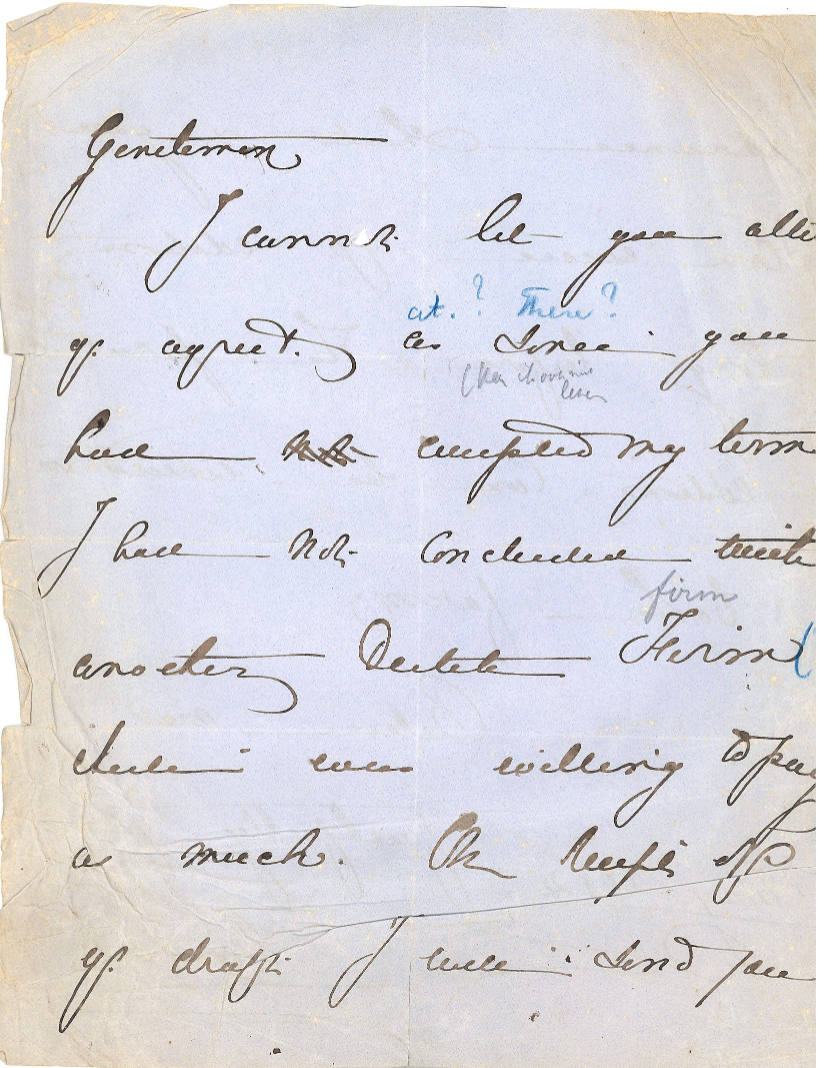 Gentlemen
I cannot let you alte
yr. agreet. as Since you
at. ? There ?
had not accepted my term
I had not concluded with
firm
another Dutch Firm (
which was willing to pay
as much. On receipt of
yr. draft I will send you